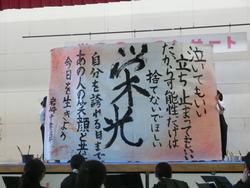 泣いてもいい
立ち止まってもいい
だから可能性だけは
捨てないでほしい
栄光
自分を誇れる日まで
あの人の笑顔と共に
今日を生きよう